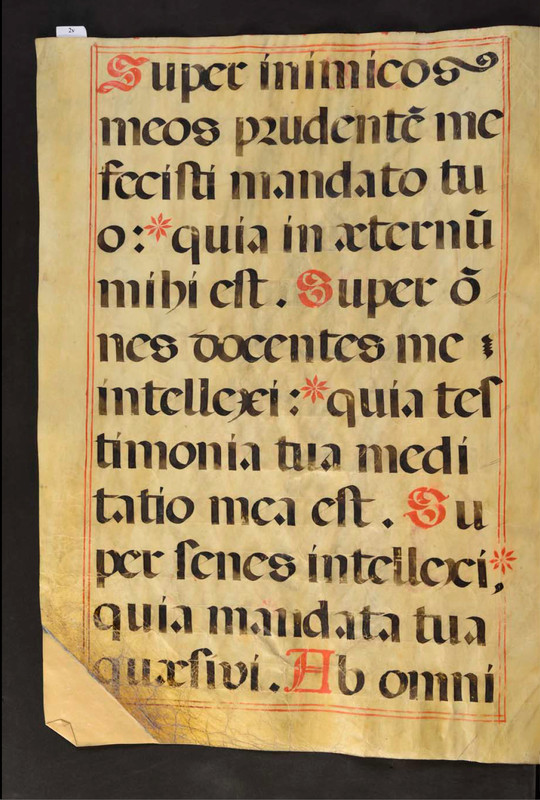 2v
Super inimicos
meos prudentē me
fecisti mandato tu
o:*quia in æternū
mihi est. Super ō
nes docentes me
intellexi:*quia tes
timonia tua medi
tatio mea est. Su
per senes intellexi*,
quia mandata tua
quæsivi. Ab omni